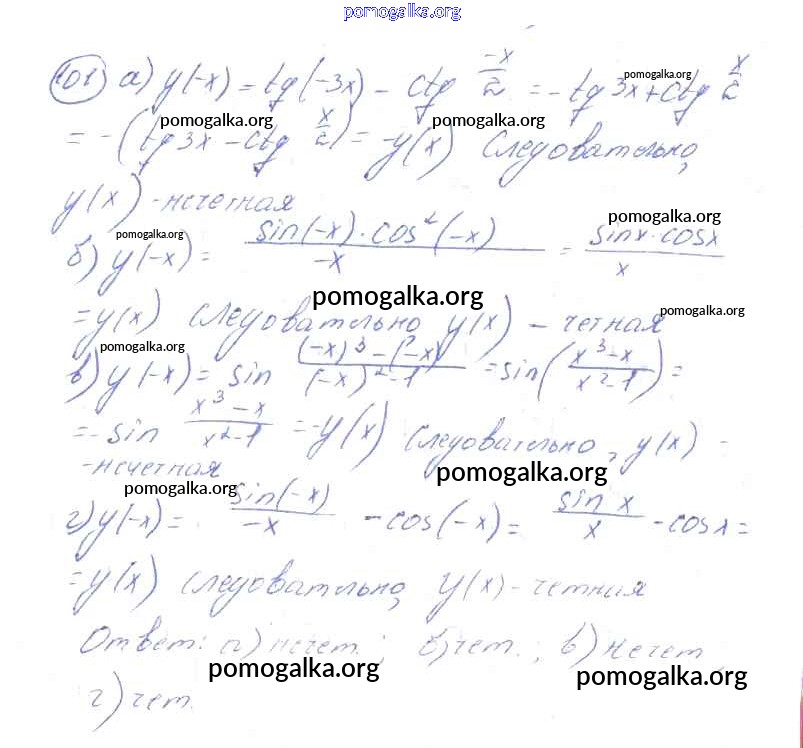 pomogalka.org
101 а) y(-x) = tg(-3x) - ctg -x/2 = -tg 3x + ctg x/2
pomogalka.org
= -(tg 3x - ctg x/2) = -y(x) Следовательно,
pomogalka.org pomogalka.org
y(x) - нечетная
pomogalka.org
pomogalka.org
б) y(-x) = sin(-x)·cos²(-x) / -x = sinx·cosx / x
pomogalka.org
= y(x) следовательно y(x) - четная
pomogalka.org
pomogalka.org
в) y(-x) = sin (-x)³-(-x) / (-x)²-1 = sin(x³-x / x²-1) =
= -sin x³-x / x²-1 = -y(x) Следовательно, y(x) -
-нечетная
pomogalka.org
pomogalka.org
г) y(-x) = sin(-x) / -x - cos(-x) = sin x / x - cosx =
= y(x) следовательно, y(x) - четная
Ответ: а) нечет. ; б) чет. ; в) нечет
pomogalka.org pomogalka.org
г) чет.